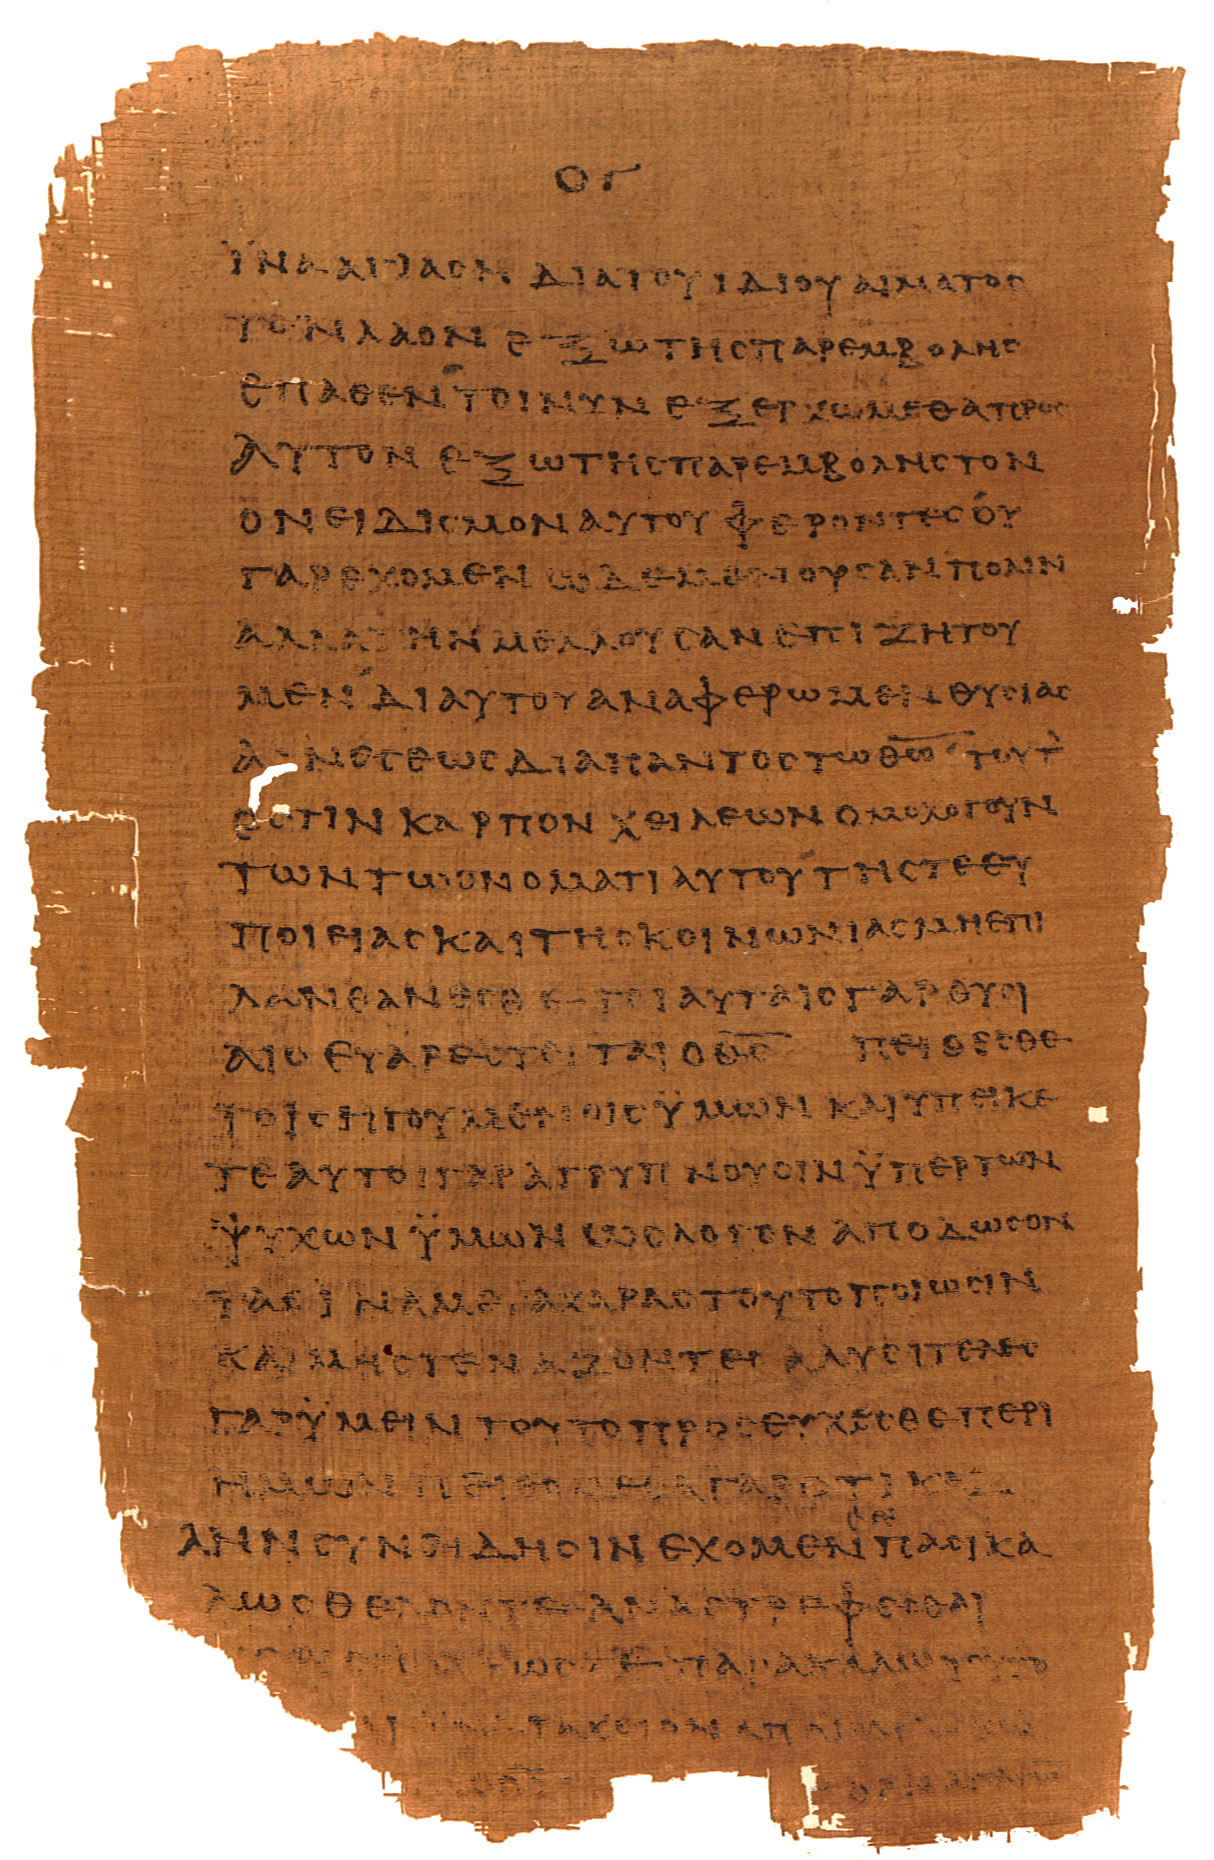 ΟΓ
ΙΝΑΑΓΙΑϹΗ ΔΙΑΤΟΥΙΔΙΟΥΑΙΜΑΤΟϹ
ΤΟΝΛΑΟΝ ΕΞΩΤΗϹΠΑΡΕΜΒΟΛΗϹ
ΕΠΑΘΕΝ ΤΟΙΝΥΝΕΞΕΡΧΩΜΕΘΑΠΡΟϹ
ΑΥΤΟΝ ΕΞΩΤΗϹΠΑΡΕΜΒΟΛΗϹΤΟΝ
ΟΝΕΙΔΙϹΜΟΝΑΥΤΟΥΦΕΡΟΝΤΕϹΟΥ
ΓΑΡΕΧΟΜΕΝΩΔΕΜΕΝΟΥϹΑΝΠΟΛΙΝ
ΑΛΛΑΤΗΝΜΕΛΛΟΥϹΑΝΕΠΙΖΗΤΟΥ
ΜΕΝ ΔΙΑΥΤΟΥΑΝΑΦΕΡΩΜΕΝΘΥϹΙΑϹ
ΑΙΝΕϹΕΩϹΔΙΑΠΑΝΤΟϹΤΩΘ̅Ω̅ ΤΟΥΤ
ΕϹΤΙΝΚΑΡΠΟΝΧΕΙΛΕΩΝΟΜΟΛΟΓΟΥΝ
ΤΩΝΤΩΟΝΟΜΑΤΙΑΥΤΟΥΤΗϹΤΕΕΥ
ΠΟΙΕΙΑϹΚΑΙΤΗϹΚΟΙΝΩΝΙΑϹΜΗΕΠΙ
ΛΑΝΘΑΝΕϹΘΕΤΟΙΑΥΤΑΙϹΓΑΡΘΥϹΙ
ΑΙϹΕΥΑΡΕϹΤΕΙΤΑΙΟΘ̅Ϲ̅ ΠΕΙΘΕϹΘΕ
ΤΟΙϹΗΓΟΥΜΕΝΟΙϹΫΜΩΝ ΚΑΙΥΠΕΙΚΕ
ΤΕΑΥΤΟΙΓΑΡΑΓΡΥΠΝΟΥϹΙΝΫΠΕΡΤΩΝ
ΨΥΧΩΝΫΜΩΝΩϹΛΟΓΟΝΑΠΟΔΩϹΟΝ
ΤΑϹΙΝΑΜΕΤΑΧΑΡΑϹΤΟΥΤΟΠΟΙΩϹΙΝ
ΚΑΙΜΗϹΤΕΝΑΖΟΝΤΕϹΑΛΥϹΙΤΕΛΕϹ
ΓΑΡΫΜΕΙΝΤΟΥΤΟΠΡΟϹΕΥΧΕϹΘΕΠΕΡΙ
ΗΜΩΝΠΕΙΘΟΜΕΘΑΓΑΡΟΤΙΚΑ
ΛΗΝϹΥΝΕΙΔΗϹΙΝΕΧΟΜΕΝΠΑϹΙΚΑ
ΛΩϹΘΕΛΟΝΤΕϹΑΝΑϹΤΡΕΦΕϹΘΑΙ
ΠΑΡΑΚΑΛΩ
ΤΑΧΕΙΟΝΑΠΟ